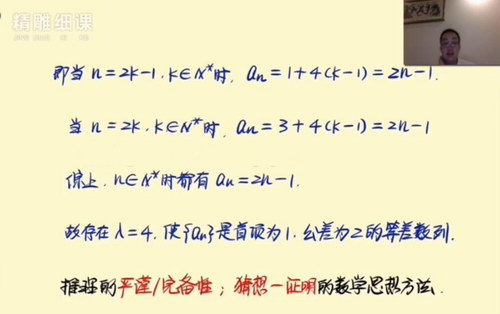 精雕细课
即当 n=2k-1, k∈N*时, an=1+4(k-1)=2n-1.
当 n=2k, k∈N*时, an=3+4(k-1)=2n-1
综上, n∈N*时都有 an=2n-1.
故存在 λ=4, 使{an}是首项为1, 公差为2的等差数列.
推理的严谨/完备性; 猜想—证明的数学思想方法.